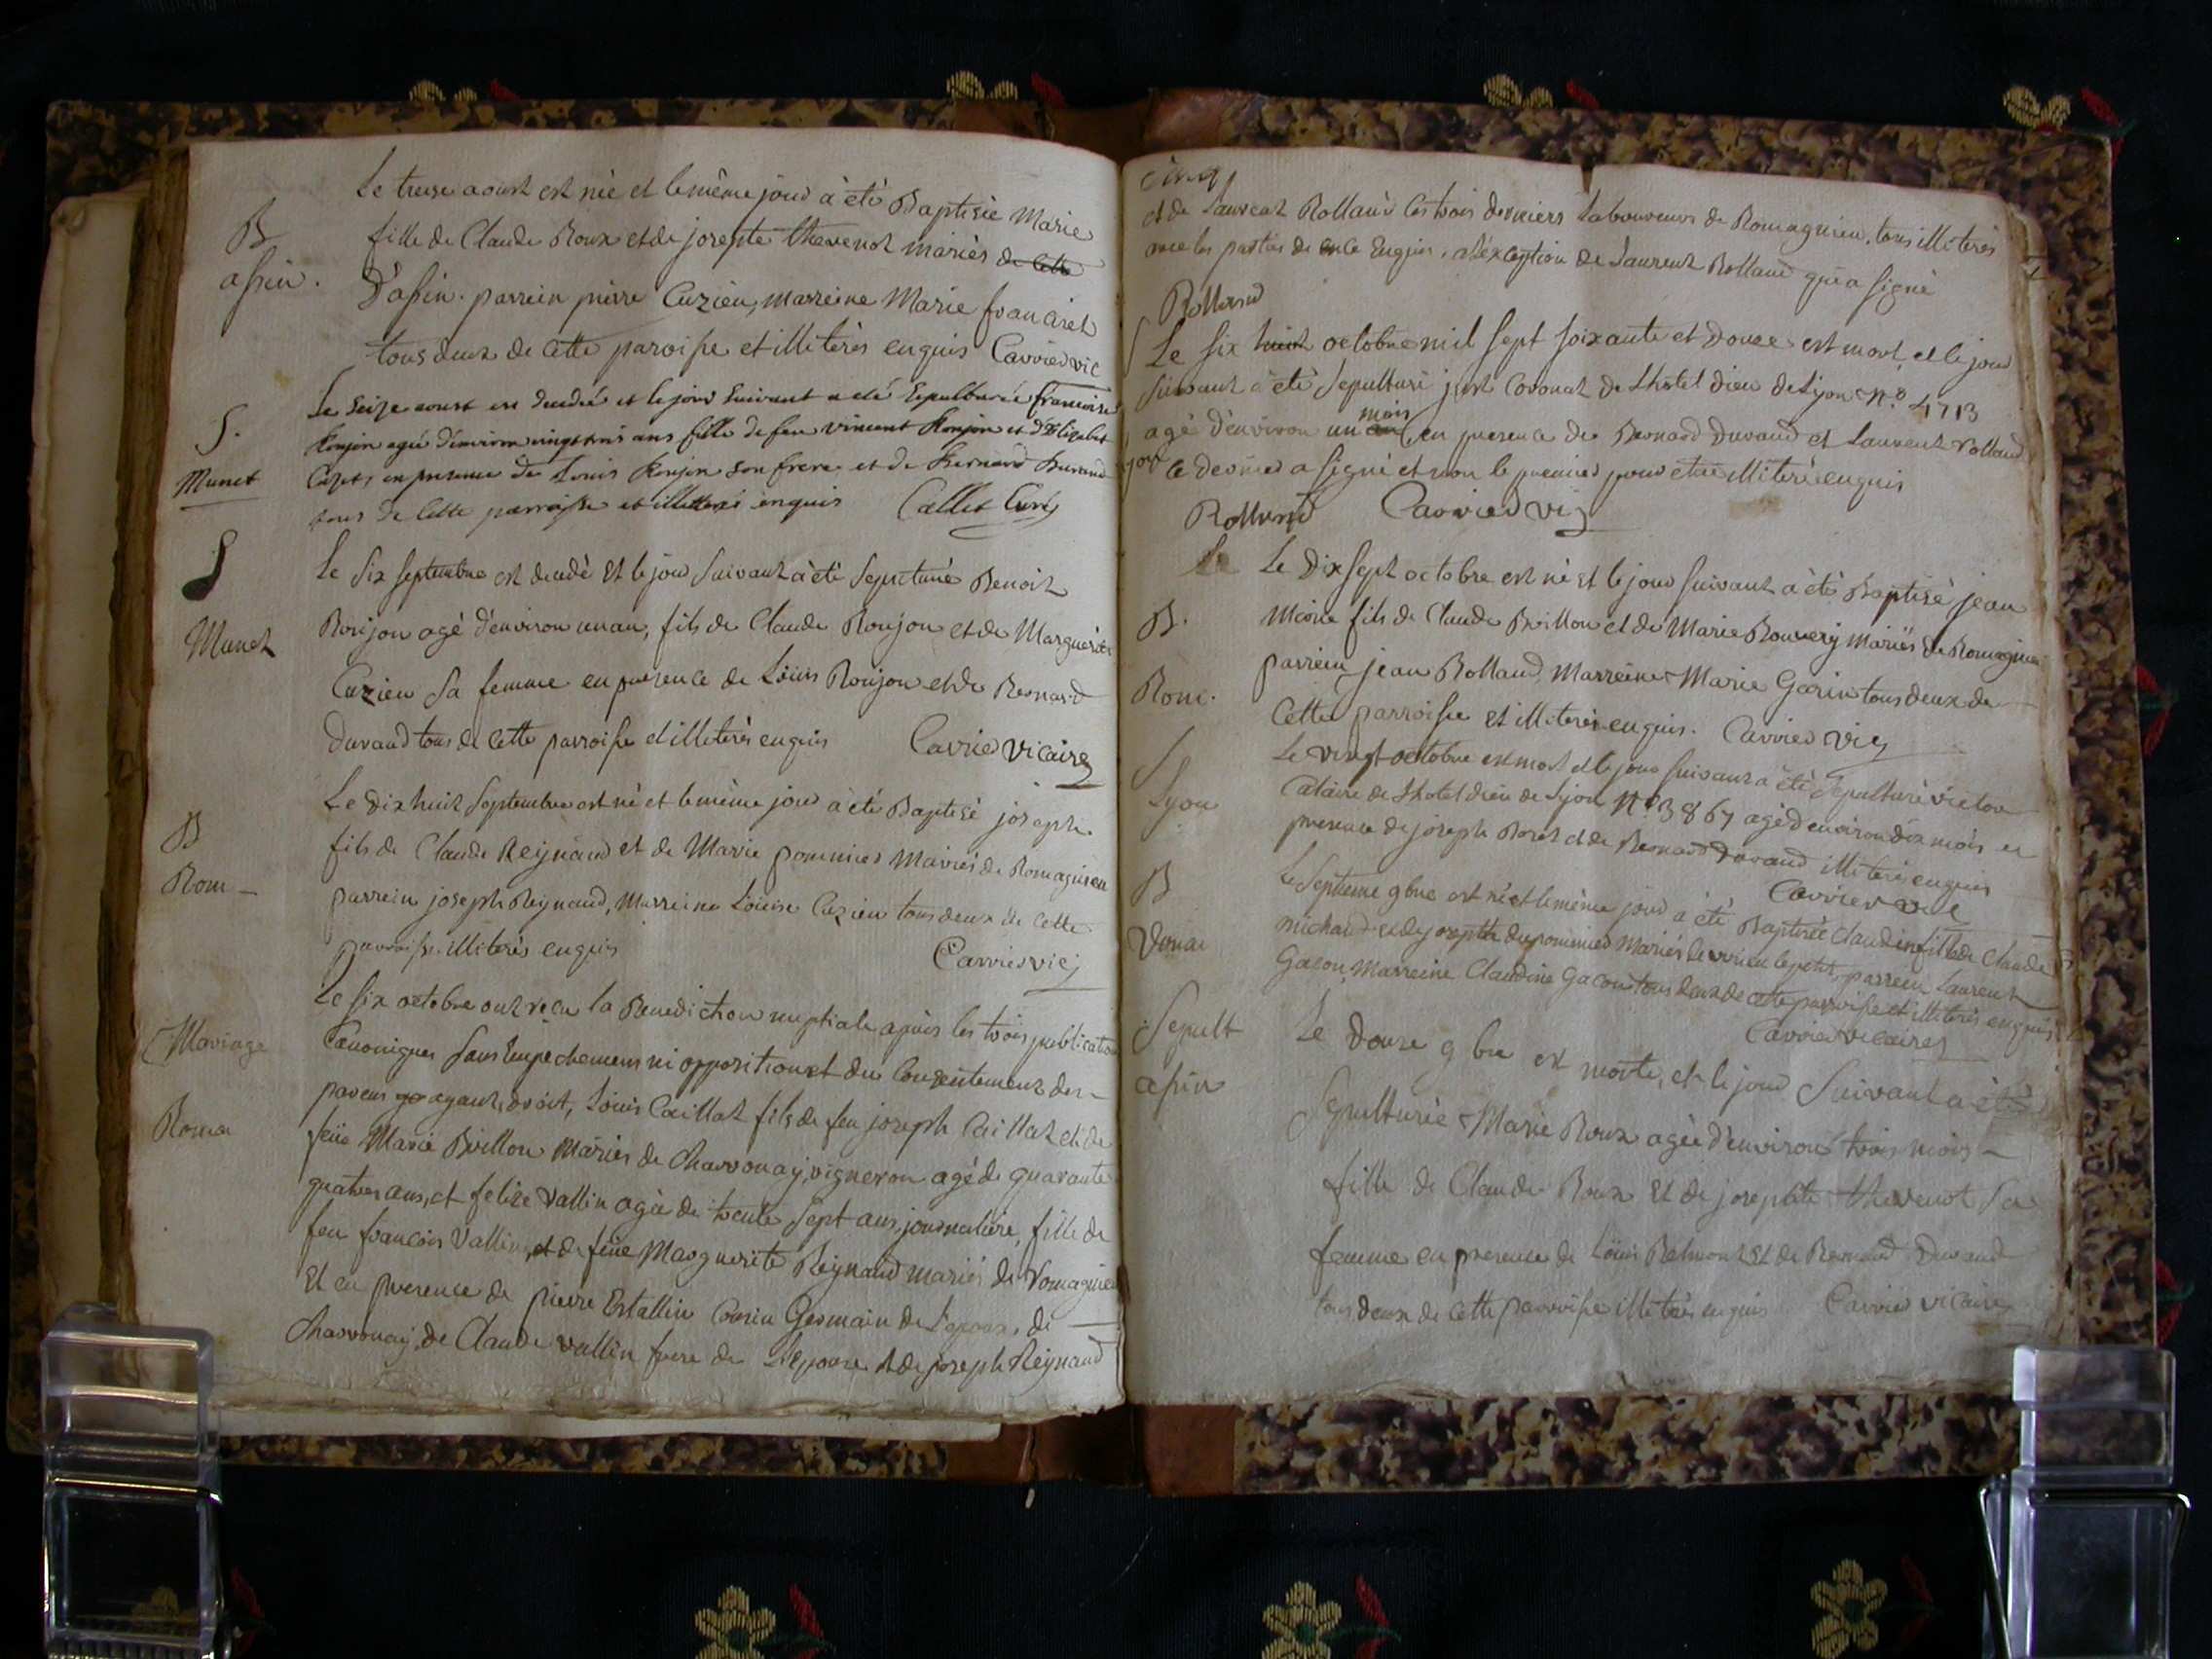 Le treise aoust est née et le même jour à été Baptisée Marie
B
fille de Claude Roux et de josephte thevenot mariés de cette
afsin.
D'afsin. parrein pierre Cuzieu, marreine Marie
tous deux de cette paroifse et illiterés enquis Carrier vic
S.
Le seize aoust est decedée et le jour suivant a eté sepulturée francoise
Roujon agée d'environ vingt trois ans fille de feu vincent Roujon et d'Elizabet
Munet
en presence de Louis Roujon son frere et de Bernard Durand
tous de cette parroifse et illitterés enquis Callet Curé
S
Le six septembre est decedé et le jour suivant à été sepulturé Benoit
Munet
Roujon agé d'environ un an, fils de Claude Roujon et de Marguerite
Cuzieu sa femme en présence de Loüis Roujon et de Bernard
Durand tous de cette parroifse et illiterés enquis Carrier vicaire
B
Le dix huit septembre est né et le même jour à été Baptisé joseph
fils de Claude Reynaud et de Marie pommier Mariés de Romagnieu
Rom -
parrein joseph Reynaud, marreine Loüise Cuzieu tous deux de cette
parroifse illiterés enquis Carrier vic
Le six octobre ont reçu la Benediction nuptiale après les trois publications
Mariage
Canoniques sans Empêchemens ni opposition et du consentement des
parens ayant droit, Loüis Caillat fils de feu joseph Caillat et de
Roma
feüe Marie Brillon Mariés de charvonay, vigneron agé de quarante
quatre ans, et felize Vallin agée de trente sept ans, journaliere, fille de
feu francois Vallin, et de feüe Marguerite Reynaud mariés de Romagnieu
Et en presence de pierre Estallin Cousin Germain de L'epoux, de
charvonay, de Claude vallin frere de L'Epouse et de joseph Reynaud
et de Laurent Rolland les trois derniers Laboureurs de Romagnieu, tous illiterés
avec les parties de ce Enquis, a l'exception de Laurent Rolland qui a signé
Rolland
Le six huit octobre mil sept soixante et douze est mort et le jour
suivant à été sepulturé just Coronat de L'hotel dieu de Lyon N.º 4713
mois
agé d'environ un an en presence de Bernard Durand et Laurent Rolland
Lyon
ce dernier a signé et non le premier pour etre illiteré enquis
Rolland Carrier vic
Le Le Dix sept octobre est né et le jour suivant à été Baptisé jean
B.
Marie fils de Claude Brillon et de Marie Bouvery Mariés de Romagnieu
parrein jean Rolland, Marreine Marie Gorin tous deux de
Rom.
Cette parroifse et illiterés enquis. Carrier vic
S
Le vingt octobre est mort et le jour suivant à été sepulturé victor
Lyon
Calaire de L'hotel dieu de Lyon N.º 3867 agé d'environ dix mois en
presence de joseph Boret et de Bernard Durand illiterés enquis
Carrier vic
B
Le septieme 9bre est né et le même jour à été Baptisée Claudine fille de Claude
michaud et de josephte dupommier Mariés de le petit, parrein Laurent
Gacon, Marreine Claudine Gacon tous deux de cette parroifse et illiterés enquis
Carrier vicaire
Sepult
Le Douze 9bre est morte, et le jour suivant a été
afsin
Sepulturée Marie Roux agée d'environ trois mois -
fille de Claude Roux Et de josephte thevenot sa
femme en presence de Loüis Belmont Et de Bernard Durand
tous deux de cette parroifse illiterés enquis Carrier vicaire